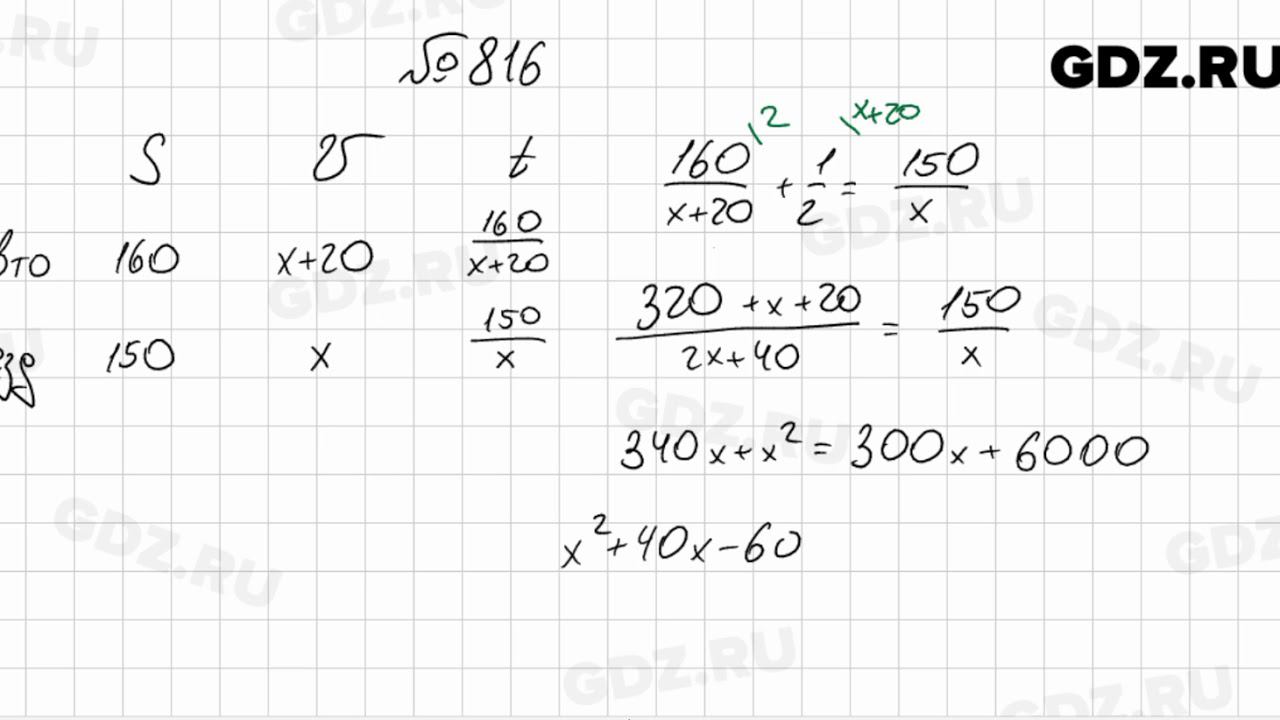 № 816
GDZ.RU
S v t
вто 160 x+20 160/(x+20)
150 x 150/x
160/(x+20) \2 + 1/2 \x+20 = 150/x
(320 + x + 20)/(2x + 40) = 150/x
340x + x² = 300x + 6000
x² + 40x - 60
GDZ.RU
GDZ.RU
GDZ.RU
GDZ.RU
GDZ.RU
GDZ.RU
GDZ.RU
GDZ.RU
GDZ.RU